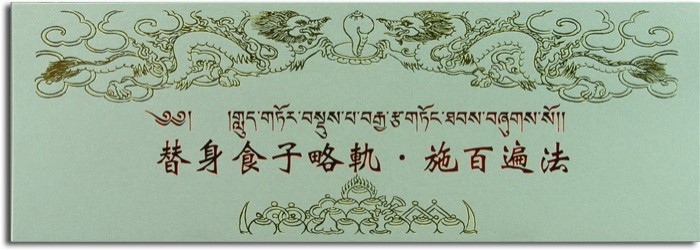 ༄༅། །གླུད་གཏོར་བསྡུས་པ་བརྒྱ་རྩ་གཏོང་ཐབས་བཞུགས་སོ།།
替身食子略軌・施百遍法